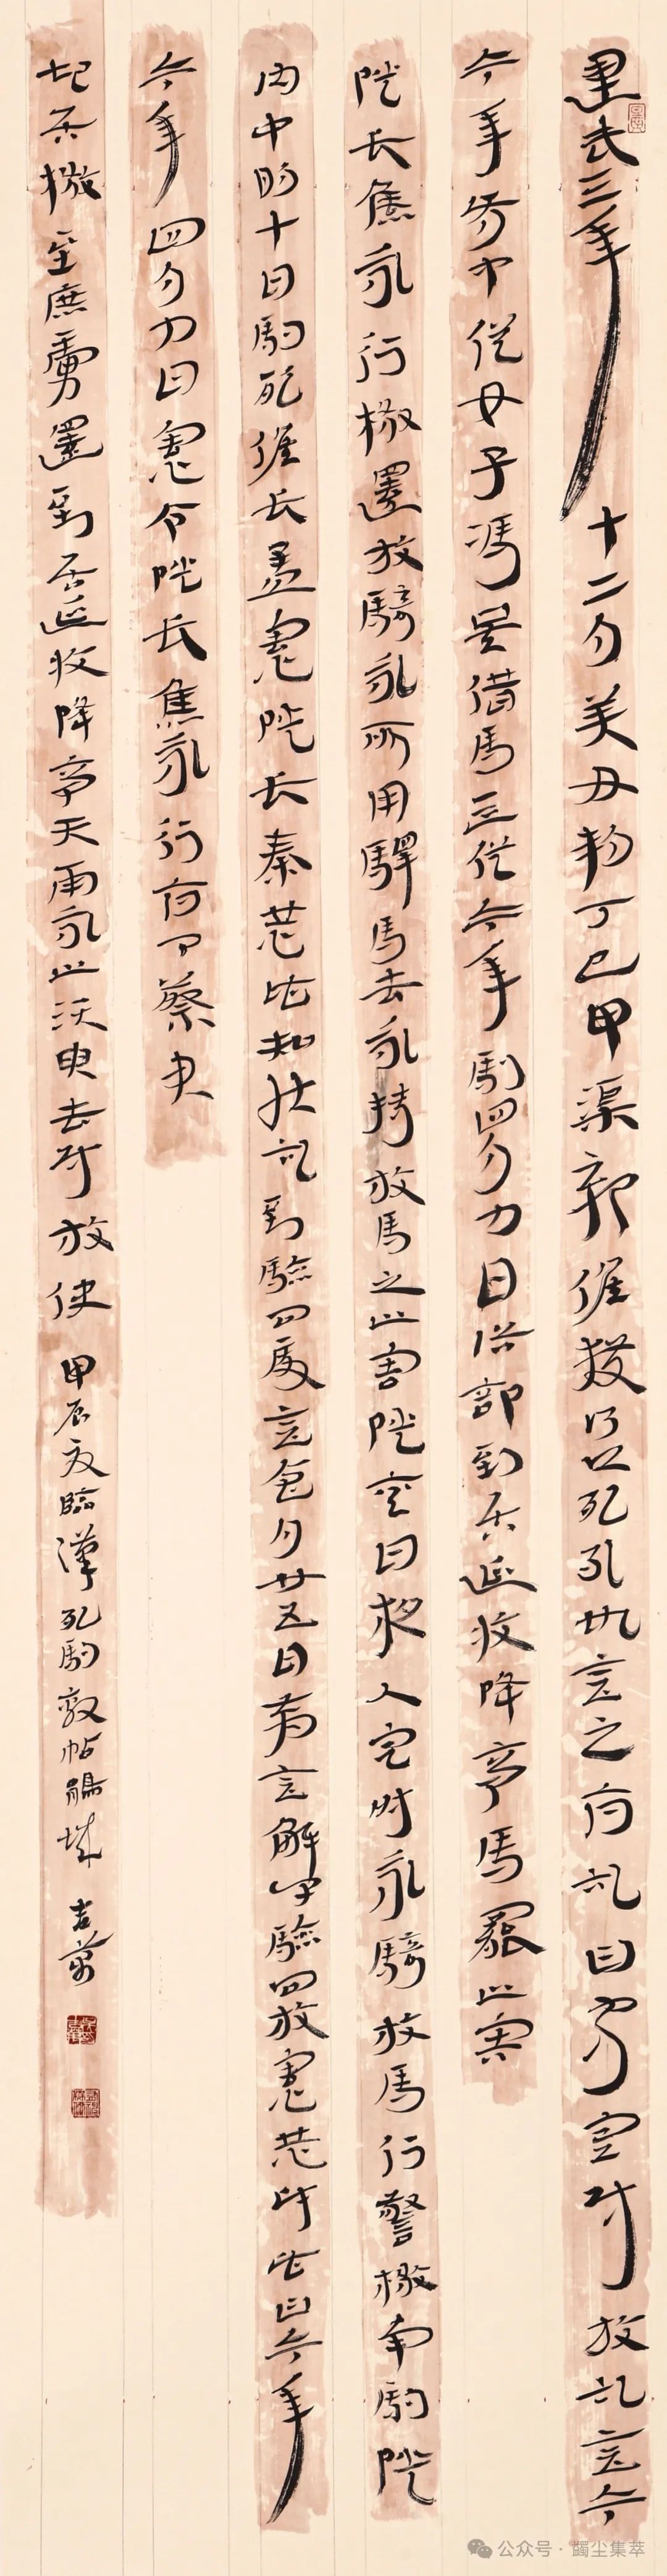 建武三年十二月癸丑朔丁巳甲渠鄣候獲叩頭死罪敢言之府記曰守塞尉放記言今
今年正月中從女子馮足借馬一匹從今年駒四月九日詣部到居延收降亭馬罷止害
隧長焦永行檄還放騎永所用驛馬去永持放馬之止害隧其日夜人定時永騎放馬行警檄牢駒隧
內中明十日駒死候長孟憲隧長秦恭皆知狀記到驗問明處言會月廿五日前言解謹驗問放憲恭辭皆曰今年
今年四月九日憲令隧長焦永行府卿蔡君
起居檄至庶虜還到居延收降亭天雨永止須臾去尉放使 甲辰夏臨漢死駒 城 吉
公众号·蠲尘集萃